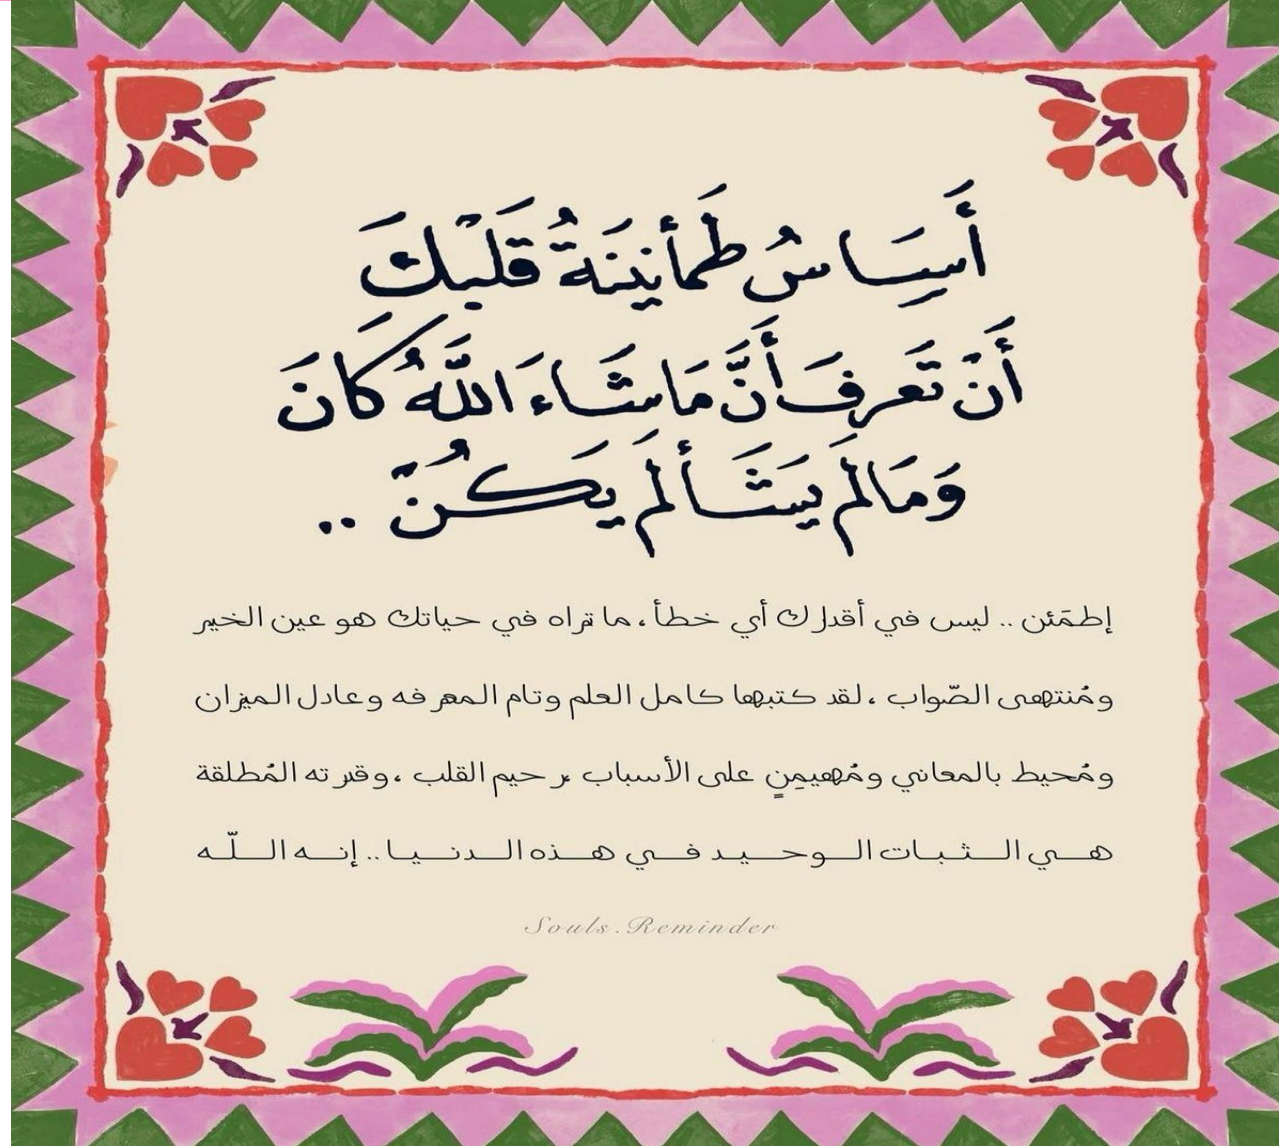 أَسَاسُ طُمَأنِينَةُ قَلبِكَ
أَنْ تَعَرِفَ أَنَّ مَا شَاءَ اللَّهُ كَانَ
وَمَا لَمَ يَشَأ لَمَ يَكُنّ ..
إطمَئن .. ليس في أقدارك أي خطأ، ما تراه في حياتك هو عين الخير
ومُنتهى الصّواب ، لقد كتبها كامل العلم وتام المعرفه وعادل الميزان
ومُحيط بالمعاني ومُهيمِنٍ على الأسباب ، رحيم القلب ، وقدرته المُطلقة
هــي الــثــبــات الــوحــيــد فــي هــذه الــدنــيــا .. إنــه الــلّــه
Souls.Reminder